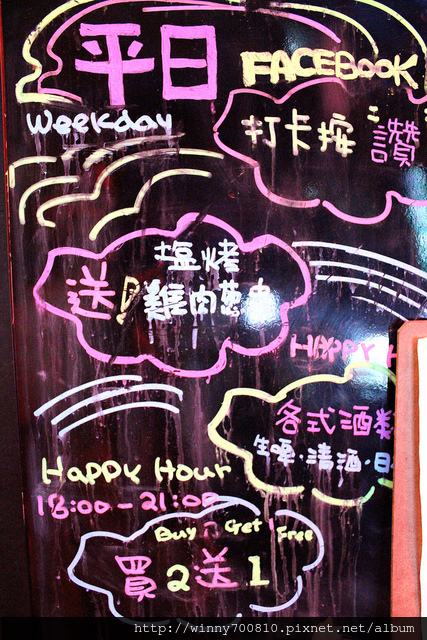 平日
FACEBOOK
Weekday
打卡按"讚
塩烤
送 雞肉蔥
HAPPY H
各式酒類
生啤·清酒·日
Happy Hour
18:00-21:00
Buy 2 Get 1 Free
買2送1
http://winny700810.pixnet.net/album